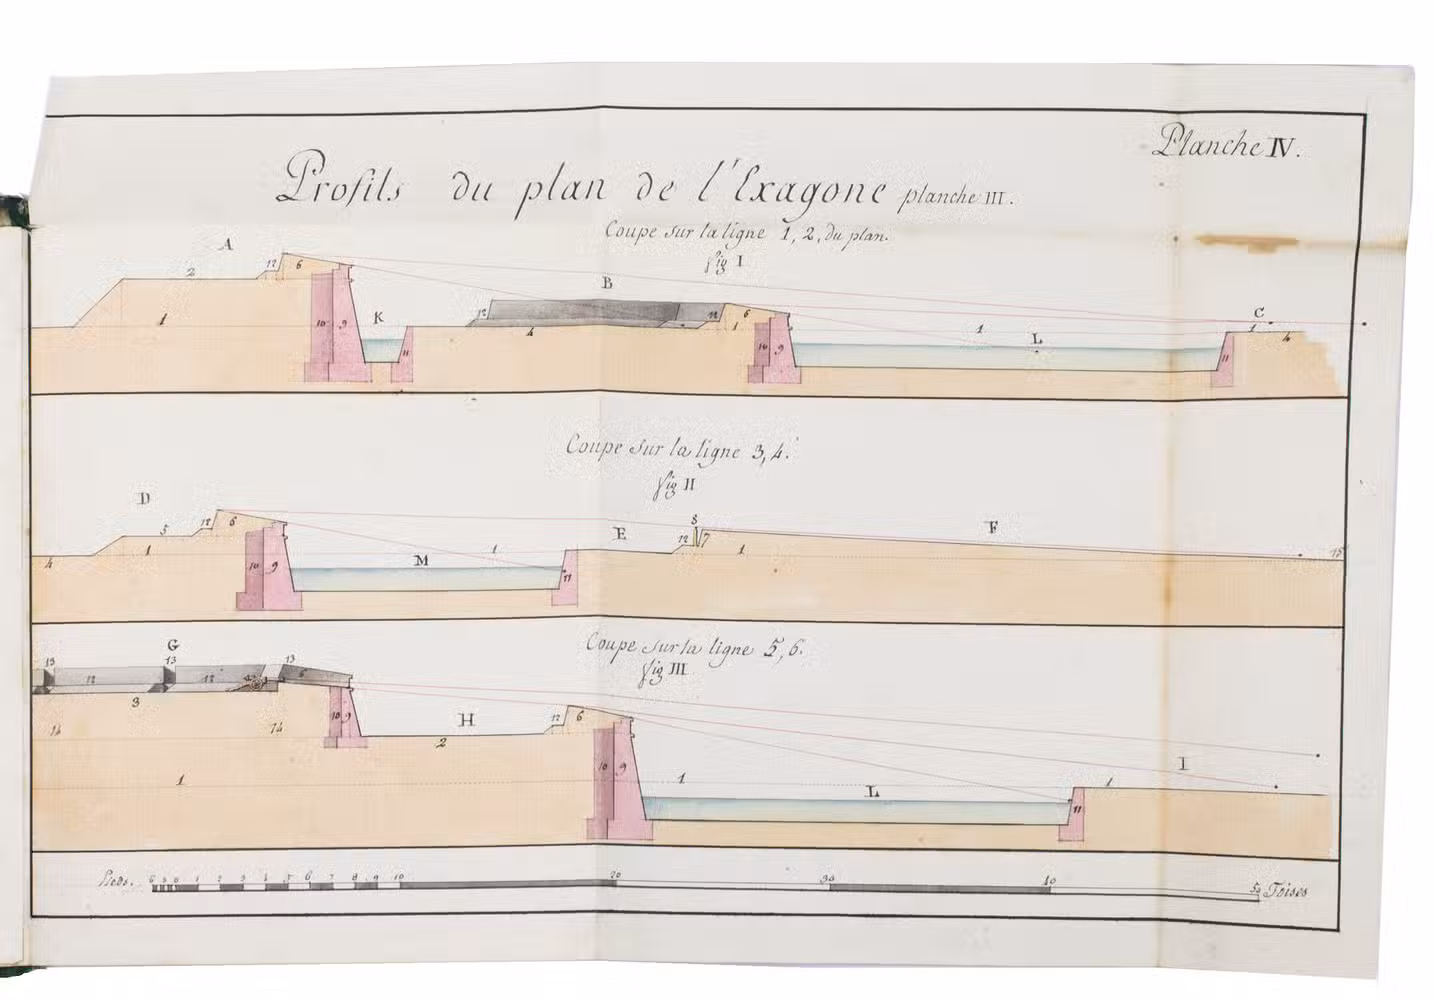 Planche IV.
Profils du plan de l'Exagone planche III.
Coupe sur la ligne 1, 2, du plan.
fig I
A
2 12 6
B
K
C
1 10 9 11 12 4 12 1 6 10 9 1 L 11 1 4
Coupe sur la ligne 3, 4.
fig II
D
5 12 6
E 12 8 7 F
4 1 10 9 M 1 11 1 15
Coupe sur la ligne 5, 6.
fig III
G
13 13 13
12 12 6
3
H 12 6
14 14 10 9 2
1 10 9 1 L 11 1 I
Pieds. 6 3 0 1 2 3 4 5 6 7 8 9 10 20 30 40 50 Toises